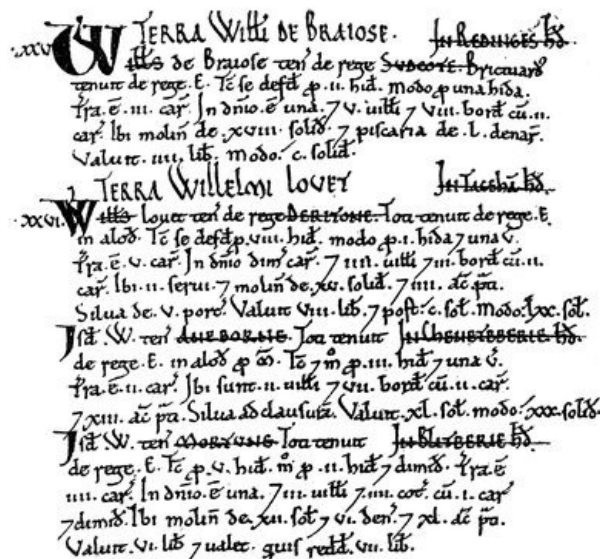 .XXV. TERRA Willi DE BRAIOSE. IN REDINGES HD̄.
Wills de Braiose ten̄ de rege SUDCOTE. Brictuard
tenuit de rege .E. Tc̄ se defd̄ p̱ .II. hid̄. modo p una hida.
Tr̄a .ē .III. car̄. In dn̄io .ē una. 7 V. uilli 7 VIII. bord̄ cū .II.
car̄. Ibi molin̄ de .XVIII. solid̄. 7 piscaria de .L. denar̄.
Valuit .IIII. lib̄. modo .C. solid̄.
.XXVI. TERRA WILLELMI LOVET IN TACEHĀ HD̄.
Wills louet ten̄ de rege Tori tenuit de rege .E.
in alod̄. Tc̄ se defd̄ p̱ .VIII. hid̄. modo p̱ .I. hida 7 una v̄.
Tr̄a .ē .V. car̄. In dn̄io dim̄ car̄. 7 IIII. uilli 7 III. bord̄ cū .II.
car̄. Ibi .II. serui. 7 molin̄ de .XV. solid̄. 7 IIII. ac̄ p̄ti.
Silua de .V. porc̄. Valuit VIII. lib̄. 7 post .C. sol̄. Modo .LXX. sol̄.
Isd̄ .W. ten̄ ANEBORNE. Tori tenuit IN HD̄.
de rege .E. in alod̄ p̱ m̄. Tc̄ 7 m̊ p̱ .III. hid̄ 7 una v̄.
Tr̄a .ē .II. car̄. Ibi sunt .II. uilli 7 VII. bord̄ cū .II. car̄.
7 XIII. ac̄ p̄ti. Silua ad clausurā. Valuit .XL. sol̄. modo .XXX. solid̄.
Isd̄ .W. ten̄ MORTUNE Tori tenuit IN BLITBERIE HD̄.
de rege .E. Tc̄ p̱ .V. hid̄. m̊ p̱ .II. hid̄ 7 dimid̄. Tr̄a .ē
IIII. car̄. In dn̄io .ē una. 7 III. uilli 7 IIII. cot̄ cū .I. car̄
7 dimid̄. Ibi molin̄ de .XII. sol̄ 7 VI. den̄. 7 XL. ac̄ p̄ti.
Valuit .VI. lib̄ 7 ualet. quis redd̄ .VII. lib̄.